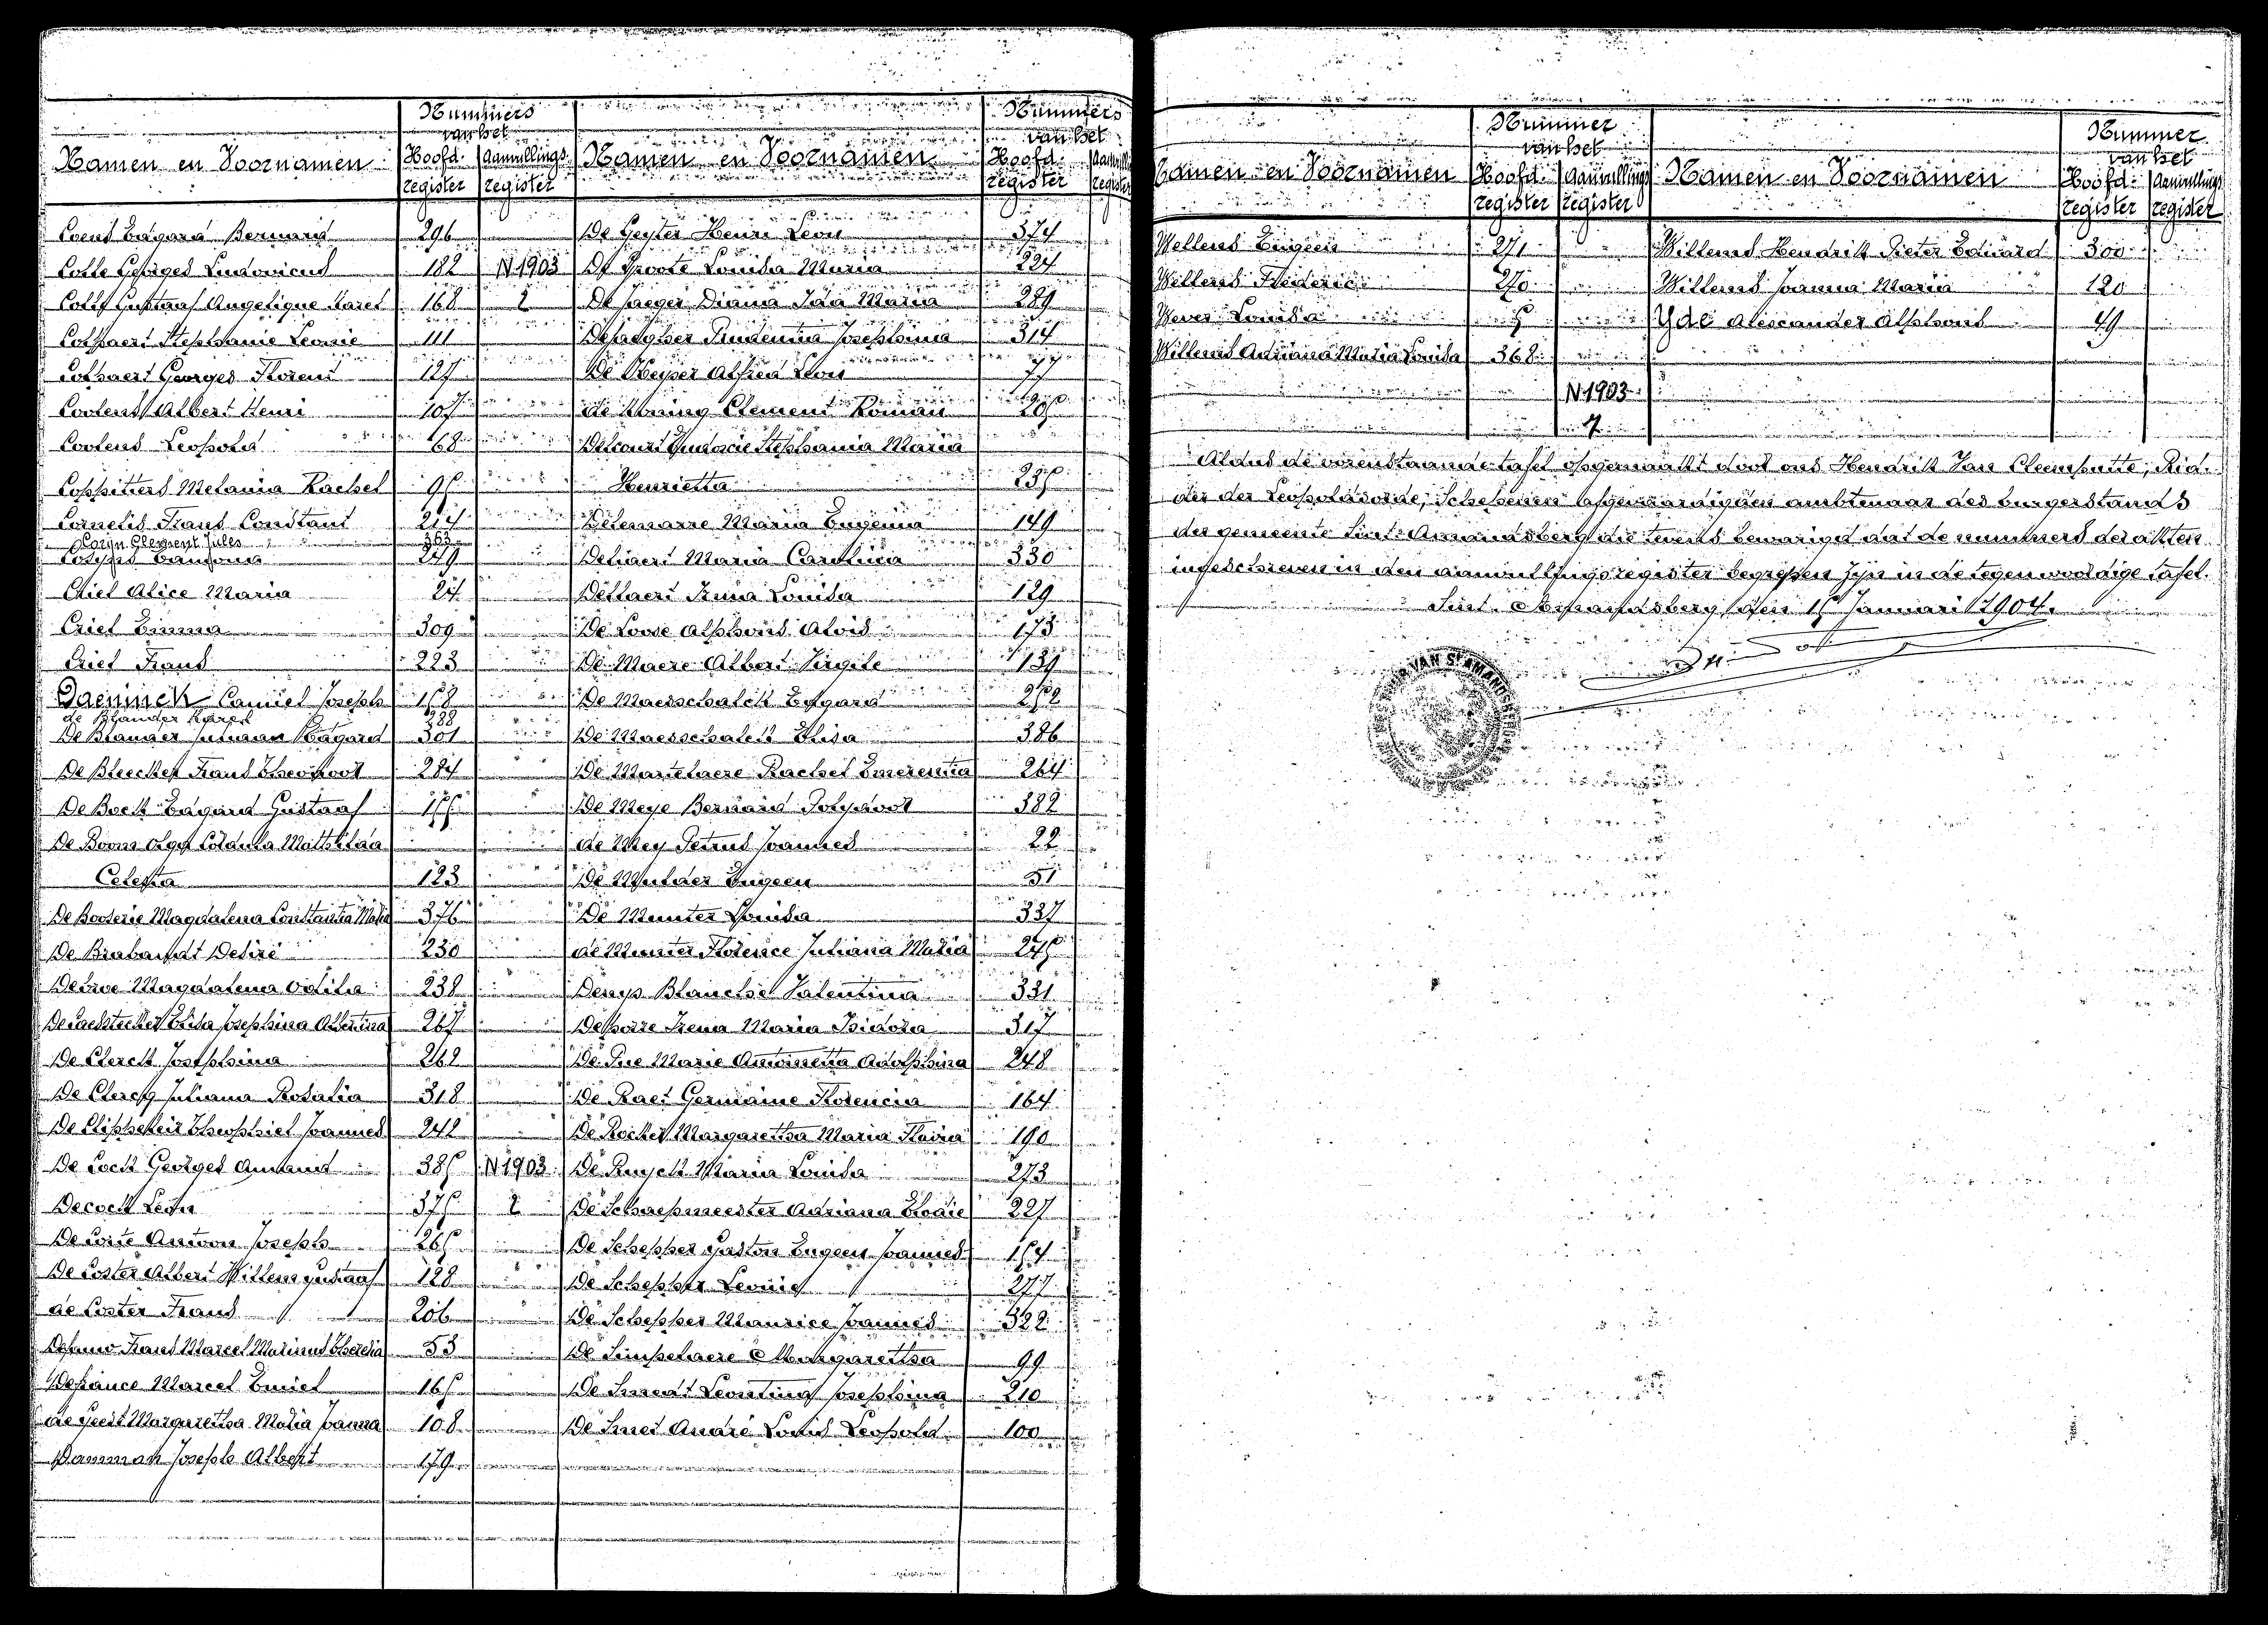 Nummers
van het
Namen en Voornamen Hoofd. register Aanvullings register
Coens Edgard Bernard 296
Colle Georges Ludovicus 182 N 1903
Colle Gustaaf Angelique Karel 168 2
Colpaert Stephanie Leonie 111
Colpaert Georges Florent 127
Coolens Albert Henri 107
Coolens Leopold 68
Coppitters Melania Rachel 95
Cornelis Frans Constant 214
Coryn Clement Jules 363
249
Criel Alice Maria 24
Criel Emma 309
Criel Frans 223
Daeninck Camiel Joseph 158
de Blander Karel 388
De Blander Edgard 301
De Bleecker Frans Theophool 284
De Bock Edgard Gustaaf 155
De Boom Olga Coldula Mathilda
Celesta 123
De Booserie Magdalena Constantia Maria 376
De Brabandt Desiré 230
Magdalena Odilia 238
Elisa Josephina Albertina 267
De Clerck Josephina 262
De Clercq Juliana Rosalia 318
De Clippeleir Theophiel Joannes 242
De Cock Georges Amand 385 N 1903
Decock Leon 375 2
De Corte Antoon Joseph 265
De Coster Albert Willem Gustaaf 128
de Coster Frans 206
Frans Marcel Marinus 53
Defrance Marcel Emiel 165
de Geest Margaretha Maria Joanna 108
Joseph Albert 179
Nummers
van het
Namen en Voornamen Hoofd. register
De Geyter Henri Leon 374
De Groote Louisa Maria 224
De Jaeger Diana Ida Maria 289
Prudentia Josephina 314
De Keyser Alfred Leon 77
de Koning Clement Roman 205
Delcourt Eudocie Stephania Maria
Henrietta 235
Delemarre Maria Eugenia 149
Deliaert Maria Carolina 330
Anna Louisa 129
De Loose Alphons Alois 173
De Maere Albert Virgile 139
De Maesschalck Edgard 252
De Maesschalck Elisa 386
De Martelaere Rachel Emerentia 264
De Meye Bernard 382
de Mey Petrus Joannes 22
De Mulder Eugeen 51
De Munter Louisa 337
de Munter Florence Juliana Maria 245
Denys Blanche Valentina 331
Irena Maria Isidora 317
De Pue Marie Antoinetta Adolphina 248
De Raet Germaine Florencia 164
De Rocker Margaretha Maria Flavia 190
De Ruyck Maria Louisa 273
De Schaepmeester Adriana Elodie 227
De Schepper Gaston Eugeen Joannes 154
De Schepper Leonie 277
De Schepper Maurice Joannes 322
De Simpelaere Margaretha 99
De Smedt Leontina Josephina 210
De Smet André Louis Leopold 100
Nummer
van het
Namen en Voornamen Hoofd. register Aanvullings register
Wellens Eugeen 271
Willems Frederic 270
Wever Louisa 5
Willems Adriana Maria Louisa 368
N 1903
Nummer
van het
Namen en Voornamen Hoofd. register Aanvullings register
Willems Hendrik Pieter Eduard 300
Willems Joanna Maria 120
Yde Alexander Alphons 49
Aldus de voorenstaande tafel opgemaakt door ons Hendrik Jan Cleemputte, Rid-
der der Leopoldsorde, Schepenen Afgevaardigden ambtenaar des burgerstands
der gemeente Sint-Amandsberg die tevens bevestigt dat de nummers der akten
ingeschreven in den aanvullingsregister begrepen zijn in de tegenwoordige tafel.
Sint-Amandsberg, den 15 Januari 1904.
VAN ST AMAND